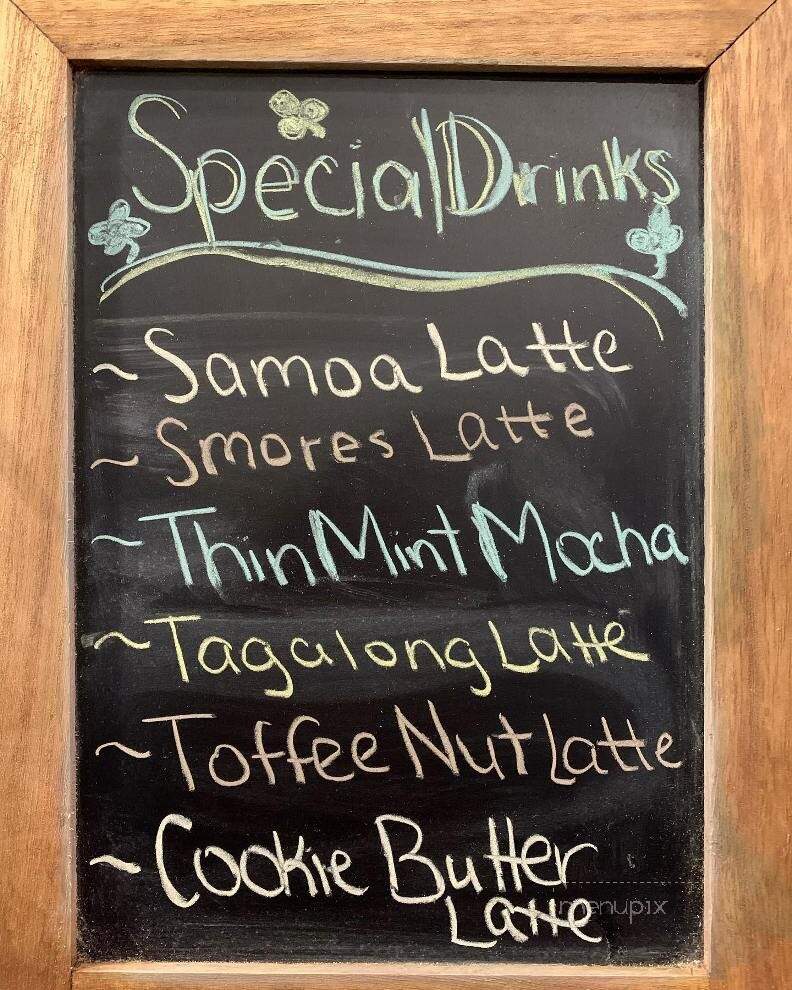 Special Drinks
~ Samoa Latte
~ Smores Latte
~ Thin Mint Mocha
~ Tagalong Latte
~ Toffee Nut Latte
~ Cookie Butter
Latte
menupix